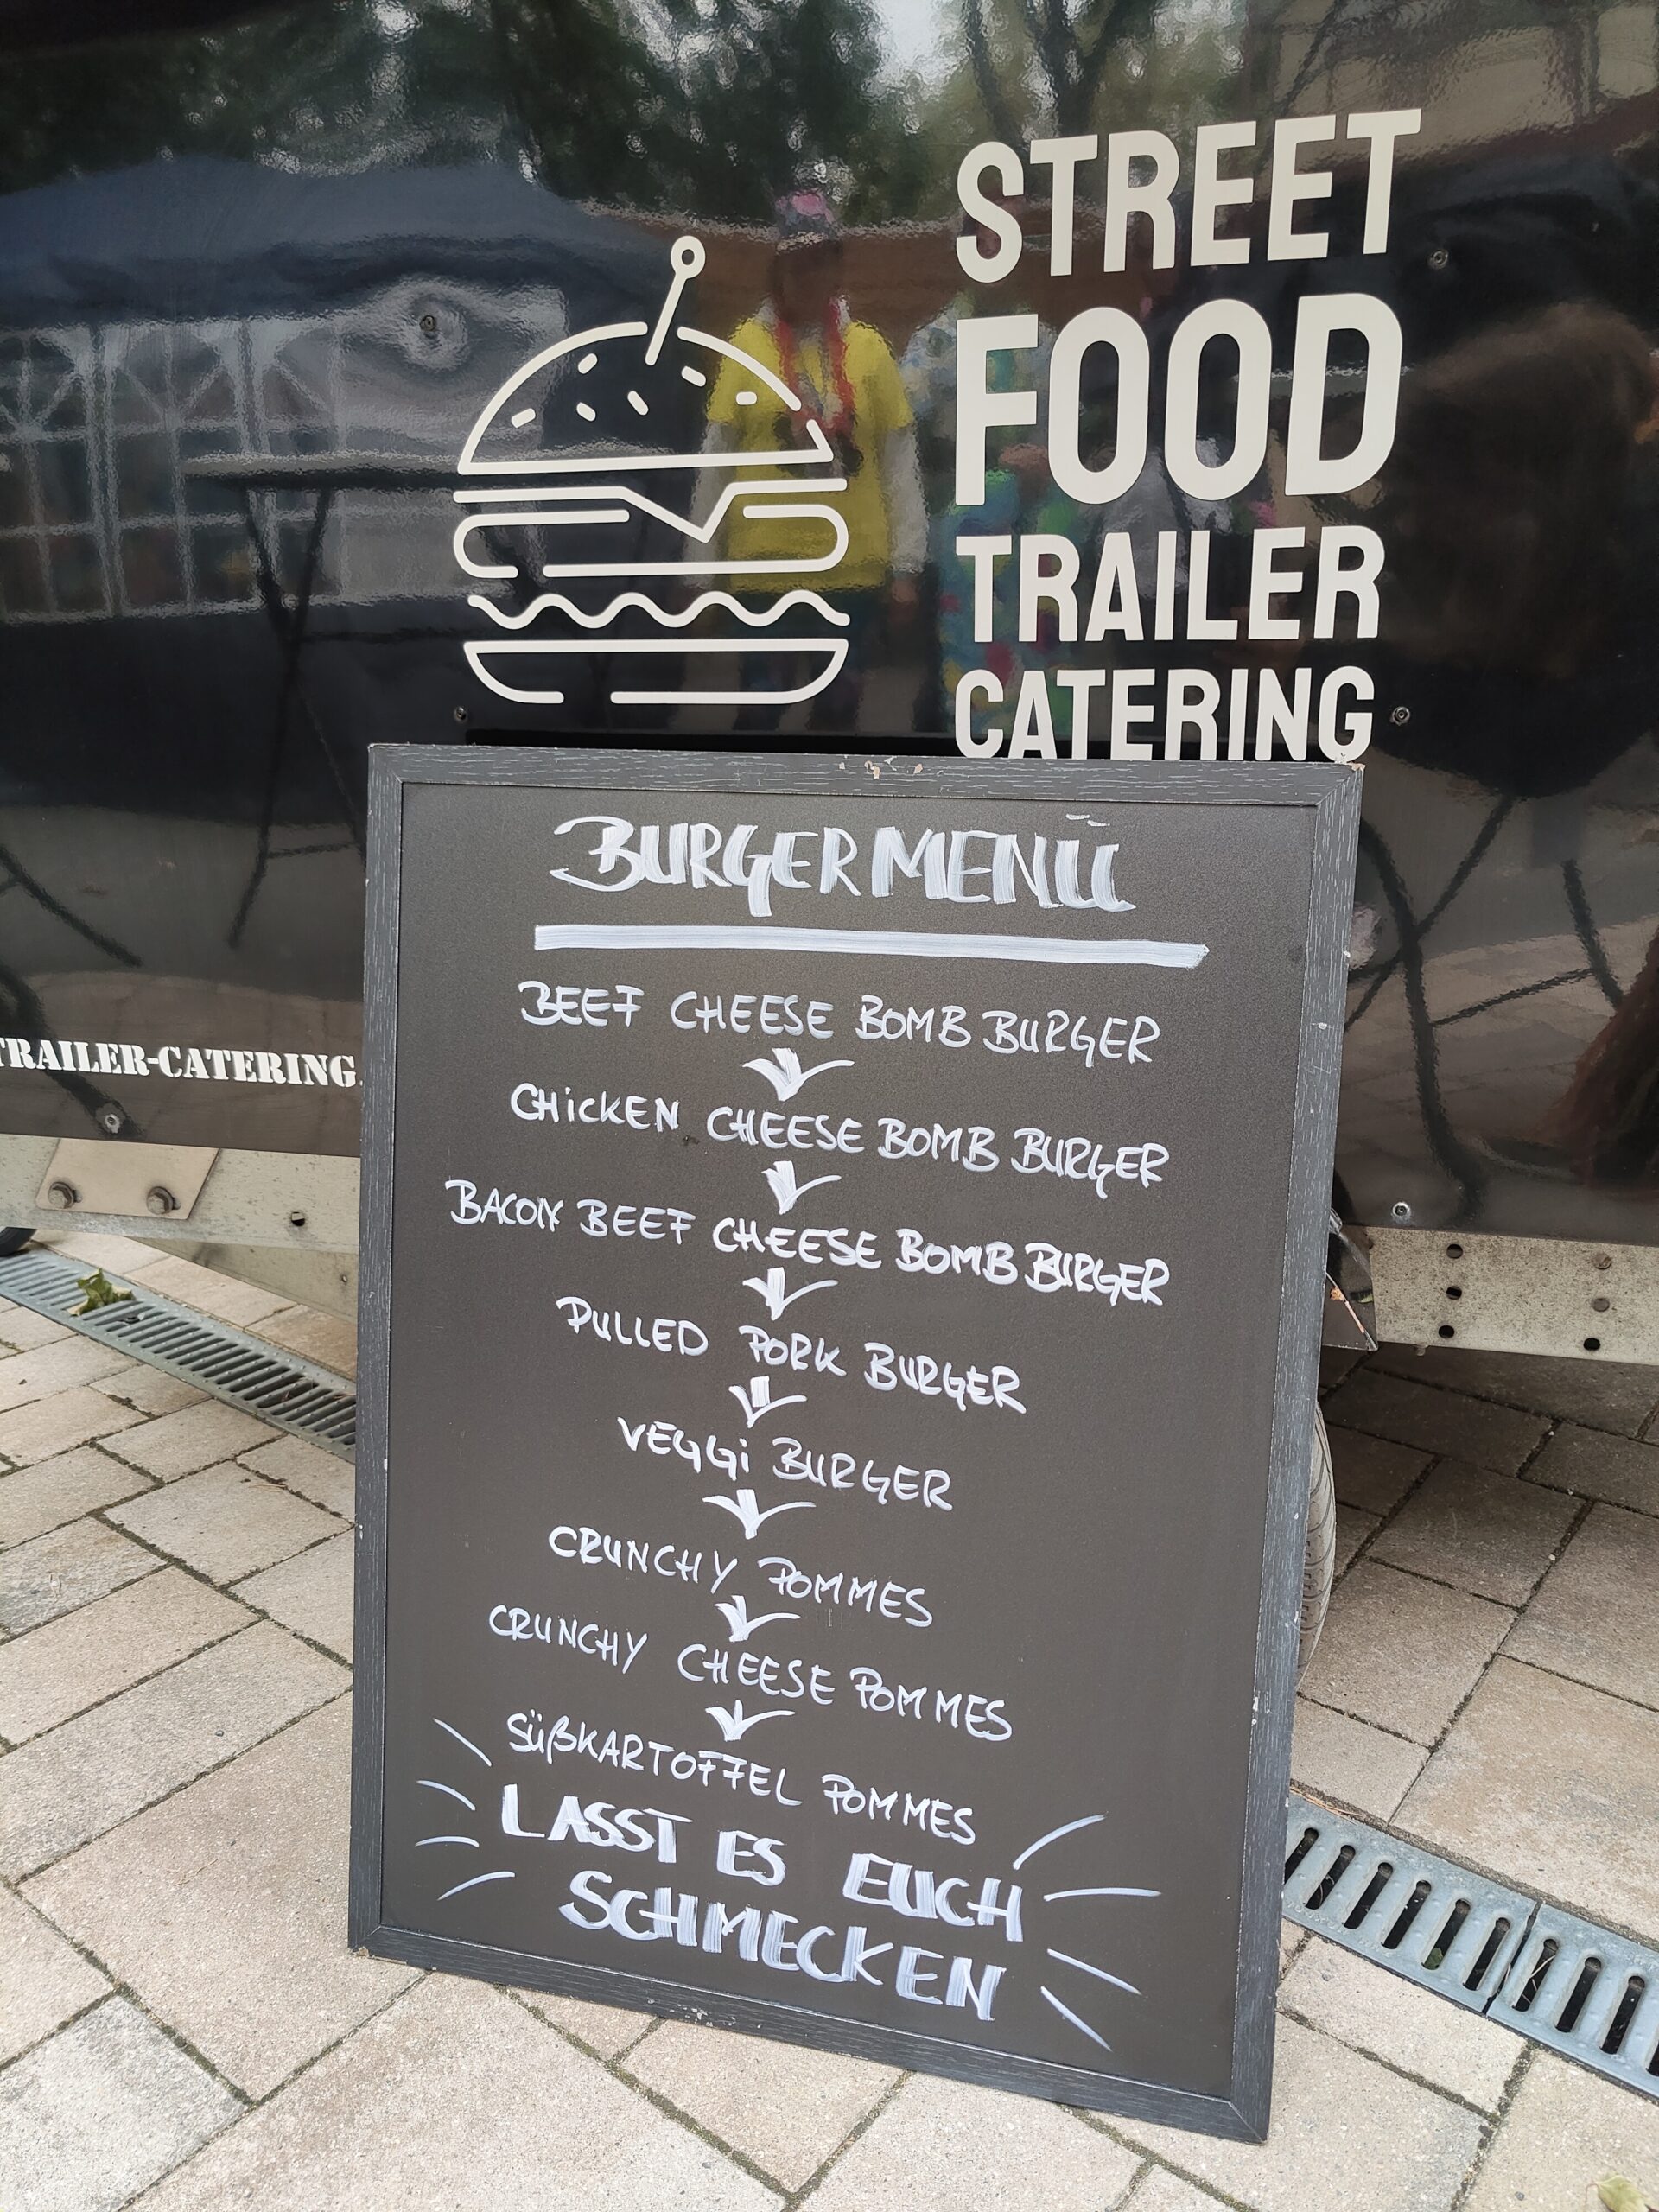 STREET
FOOD
TRAILER
CATERING
TRAILER-CATERING.
BURGER MENÜ
BEEF CHEESE BOMB BURGER
CHiCKEN CHEESE BOMB BURGER
BACON BEEF CHEESE BOMB BURGER
PULLED PORK BURGER
VEGGi BURGER
CRUNCHY POMMES
CRUNCHY CHEESE POMMES
SÜßKARTOFFEL POMMES
LASST ES EUCH
SCHMECKEN